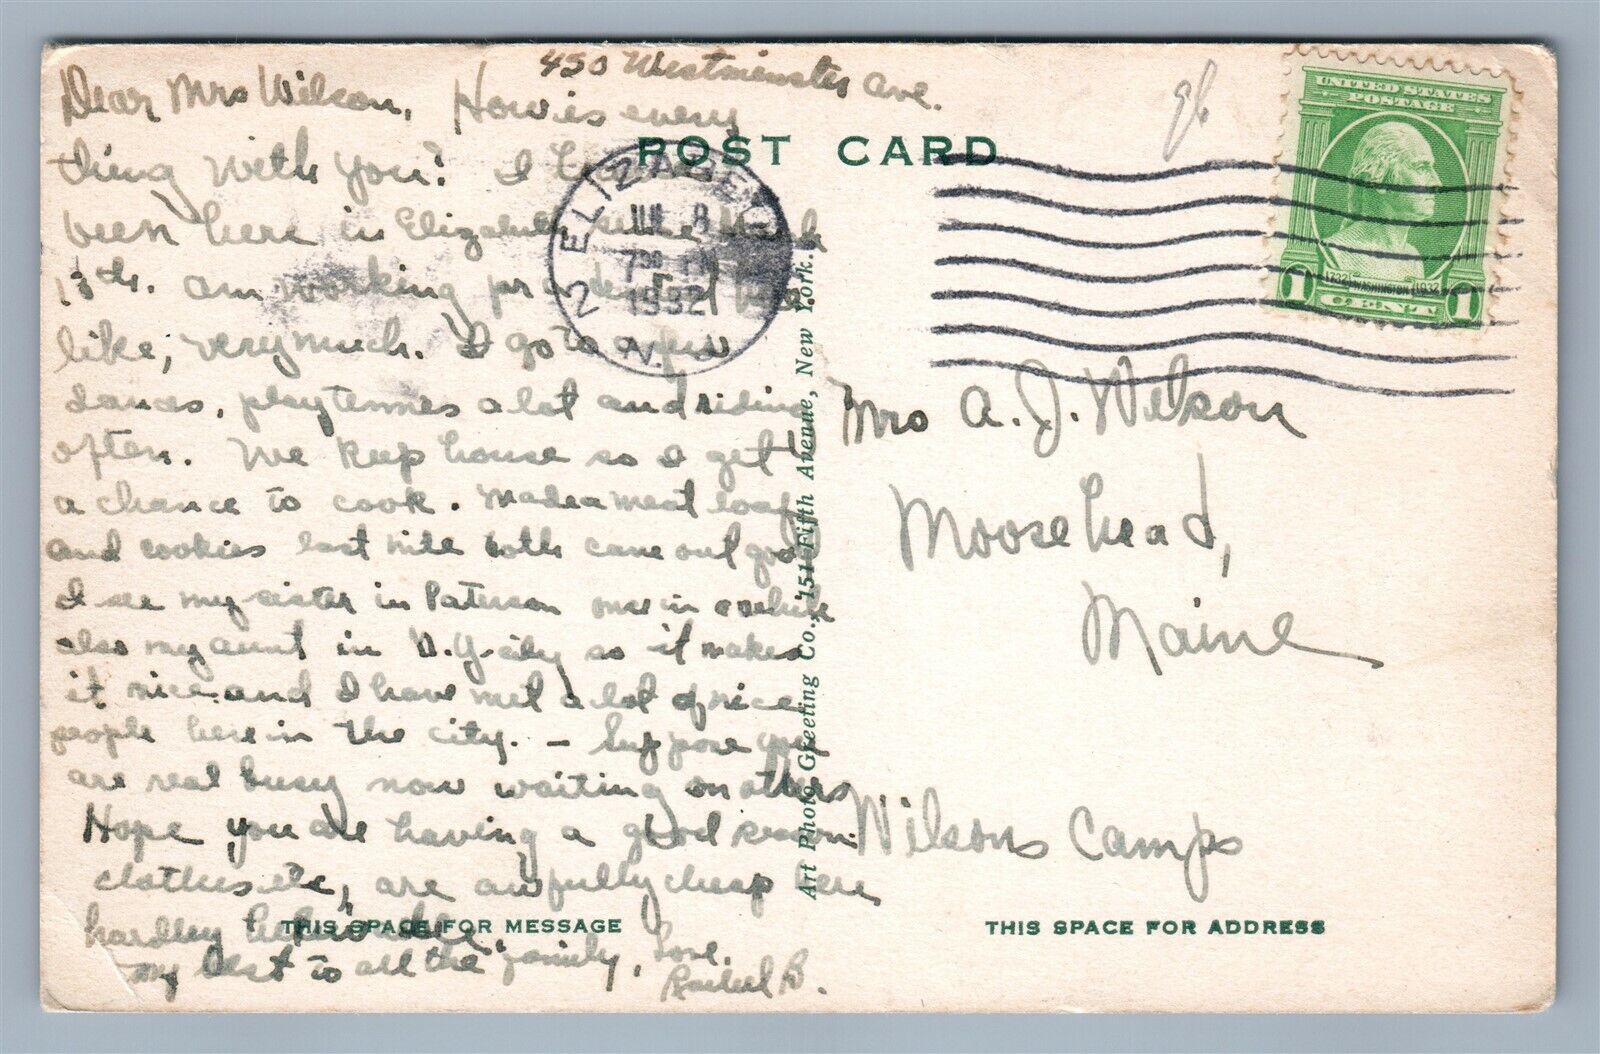 450 Westminster Ave.
Dear Mrs Wilson, How is every
thing with you? I
been here in Elizabeth since March
13th. am working
like, very much. I go to a few
dances, play tennis a lot and riding
often. We keep house so I get
a chance to cook. Made a meat loaf
and cookies last nite both came out good
I see my sister in Paterson once in a while
also my aunt in N.Y. city so it makes
it nice and I have met a lot of nice
people here in the city. - Suppose you
are real busy now waiting on others
Hope you are having a good season
clothes etc, are awfully cheap here
hardly
my best to all the family, Love.
Rachel B.
POST CARD
ELIZABETH
JUL 8
7 30 PM
1932
N.J.
UNITED STATES
POSTAGE
1732 WASHINGTON 1932
1 CENT 1
Mrs A. J. Wilson
Moosehead,
Maine
Wilsons Camps
Art Photo Greeting Co., 151 Fifth Avenue, New York.
THIS SPACE FOR MESSAGE
THIS SPACE FOR ADDRESS